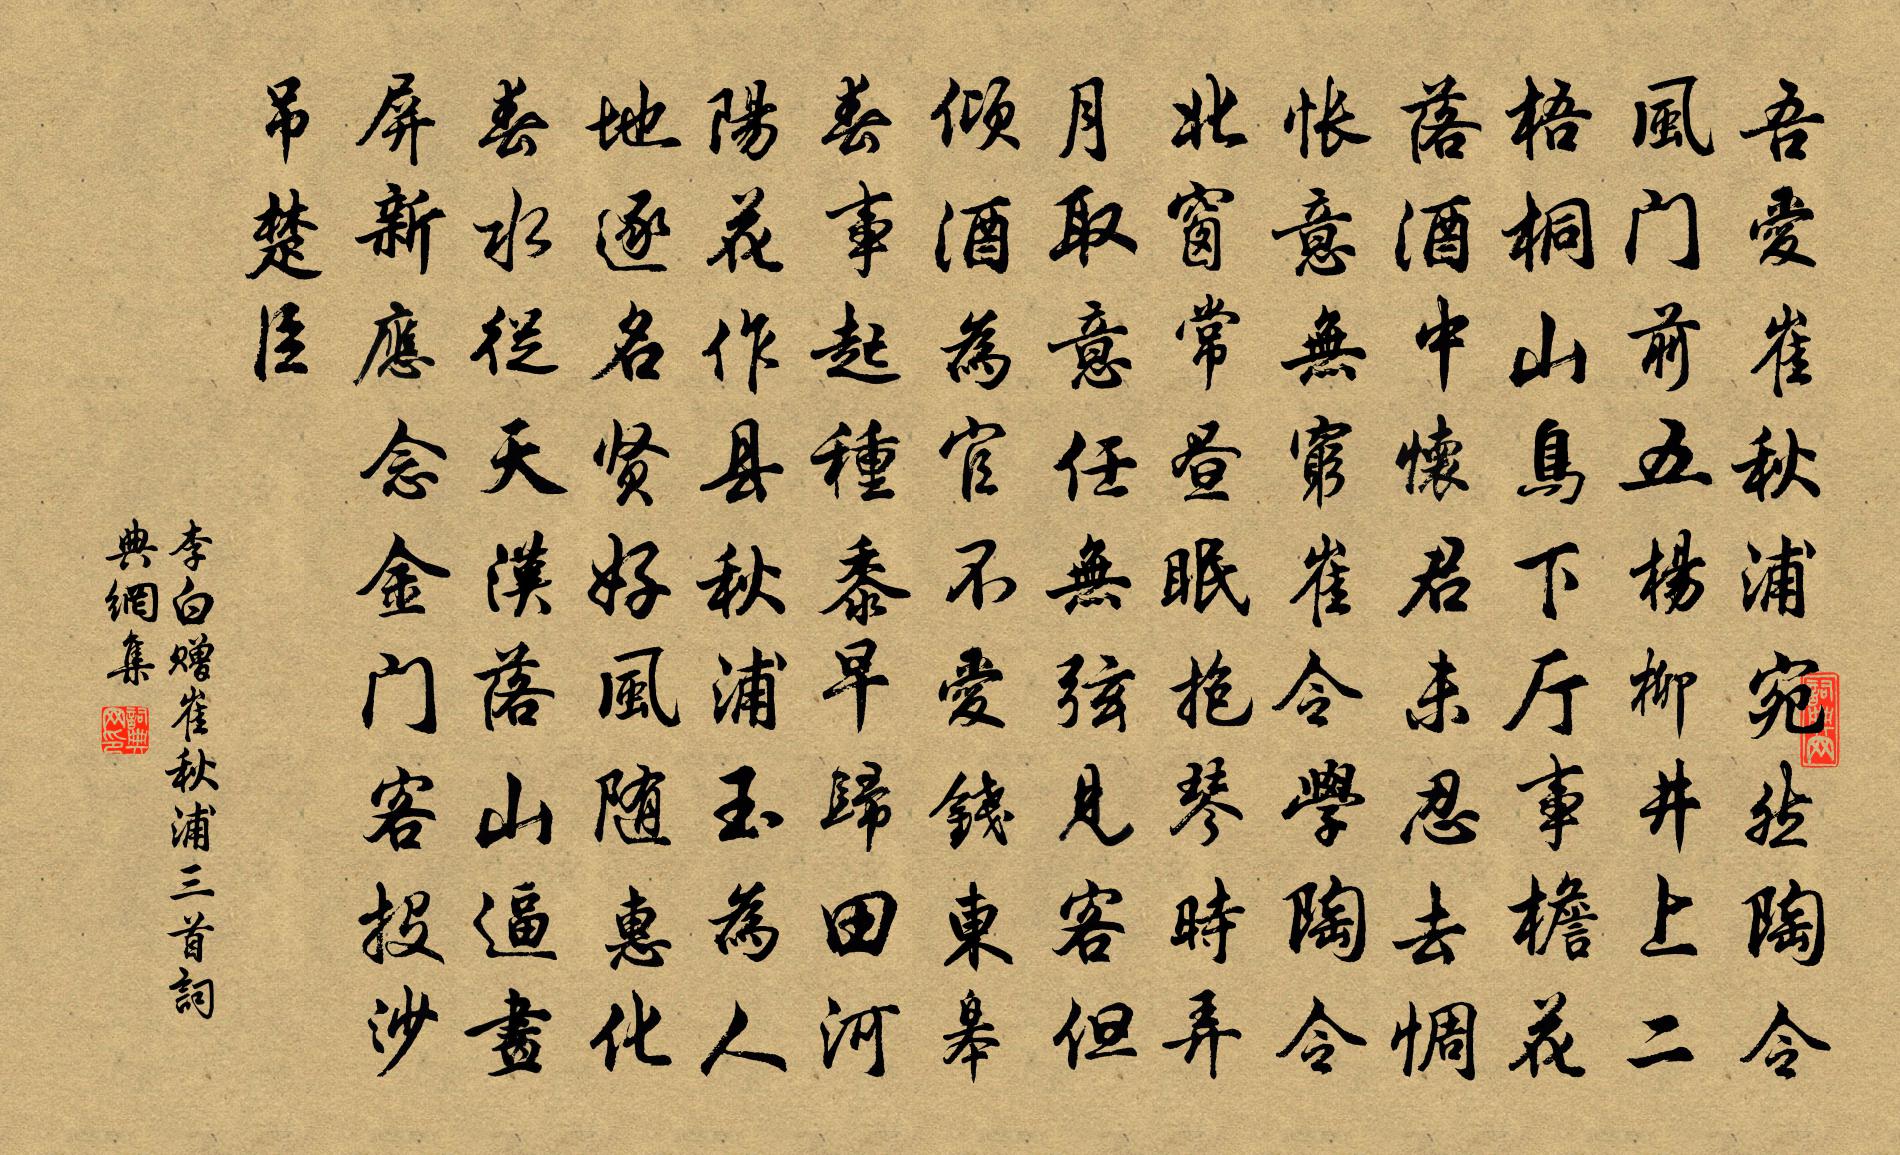 吾愛崔秋浦宛然陶令
風门前五楊柳井上二
梧桐山鳥下厅事檐花
落酒中懷君未忍去惆
悵意無窮崔令學陶令
北窗常昼眠抱琴時弄
月取意任無弦見客但
傾酒為官不愛錢東皋
春事起種黍早歸田河
陽花作县秋浦玉為人
地逐名贤好風随惠化
春水從天漢落山逼畫
屏新應念金门客投沙
吊楚臣
李白赠崔秋浦三首詞
典網集
詞典网
詞典网印